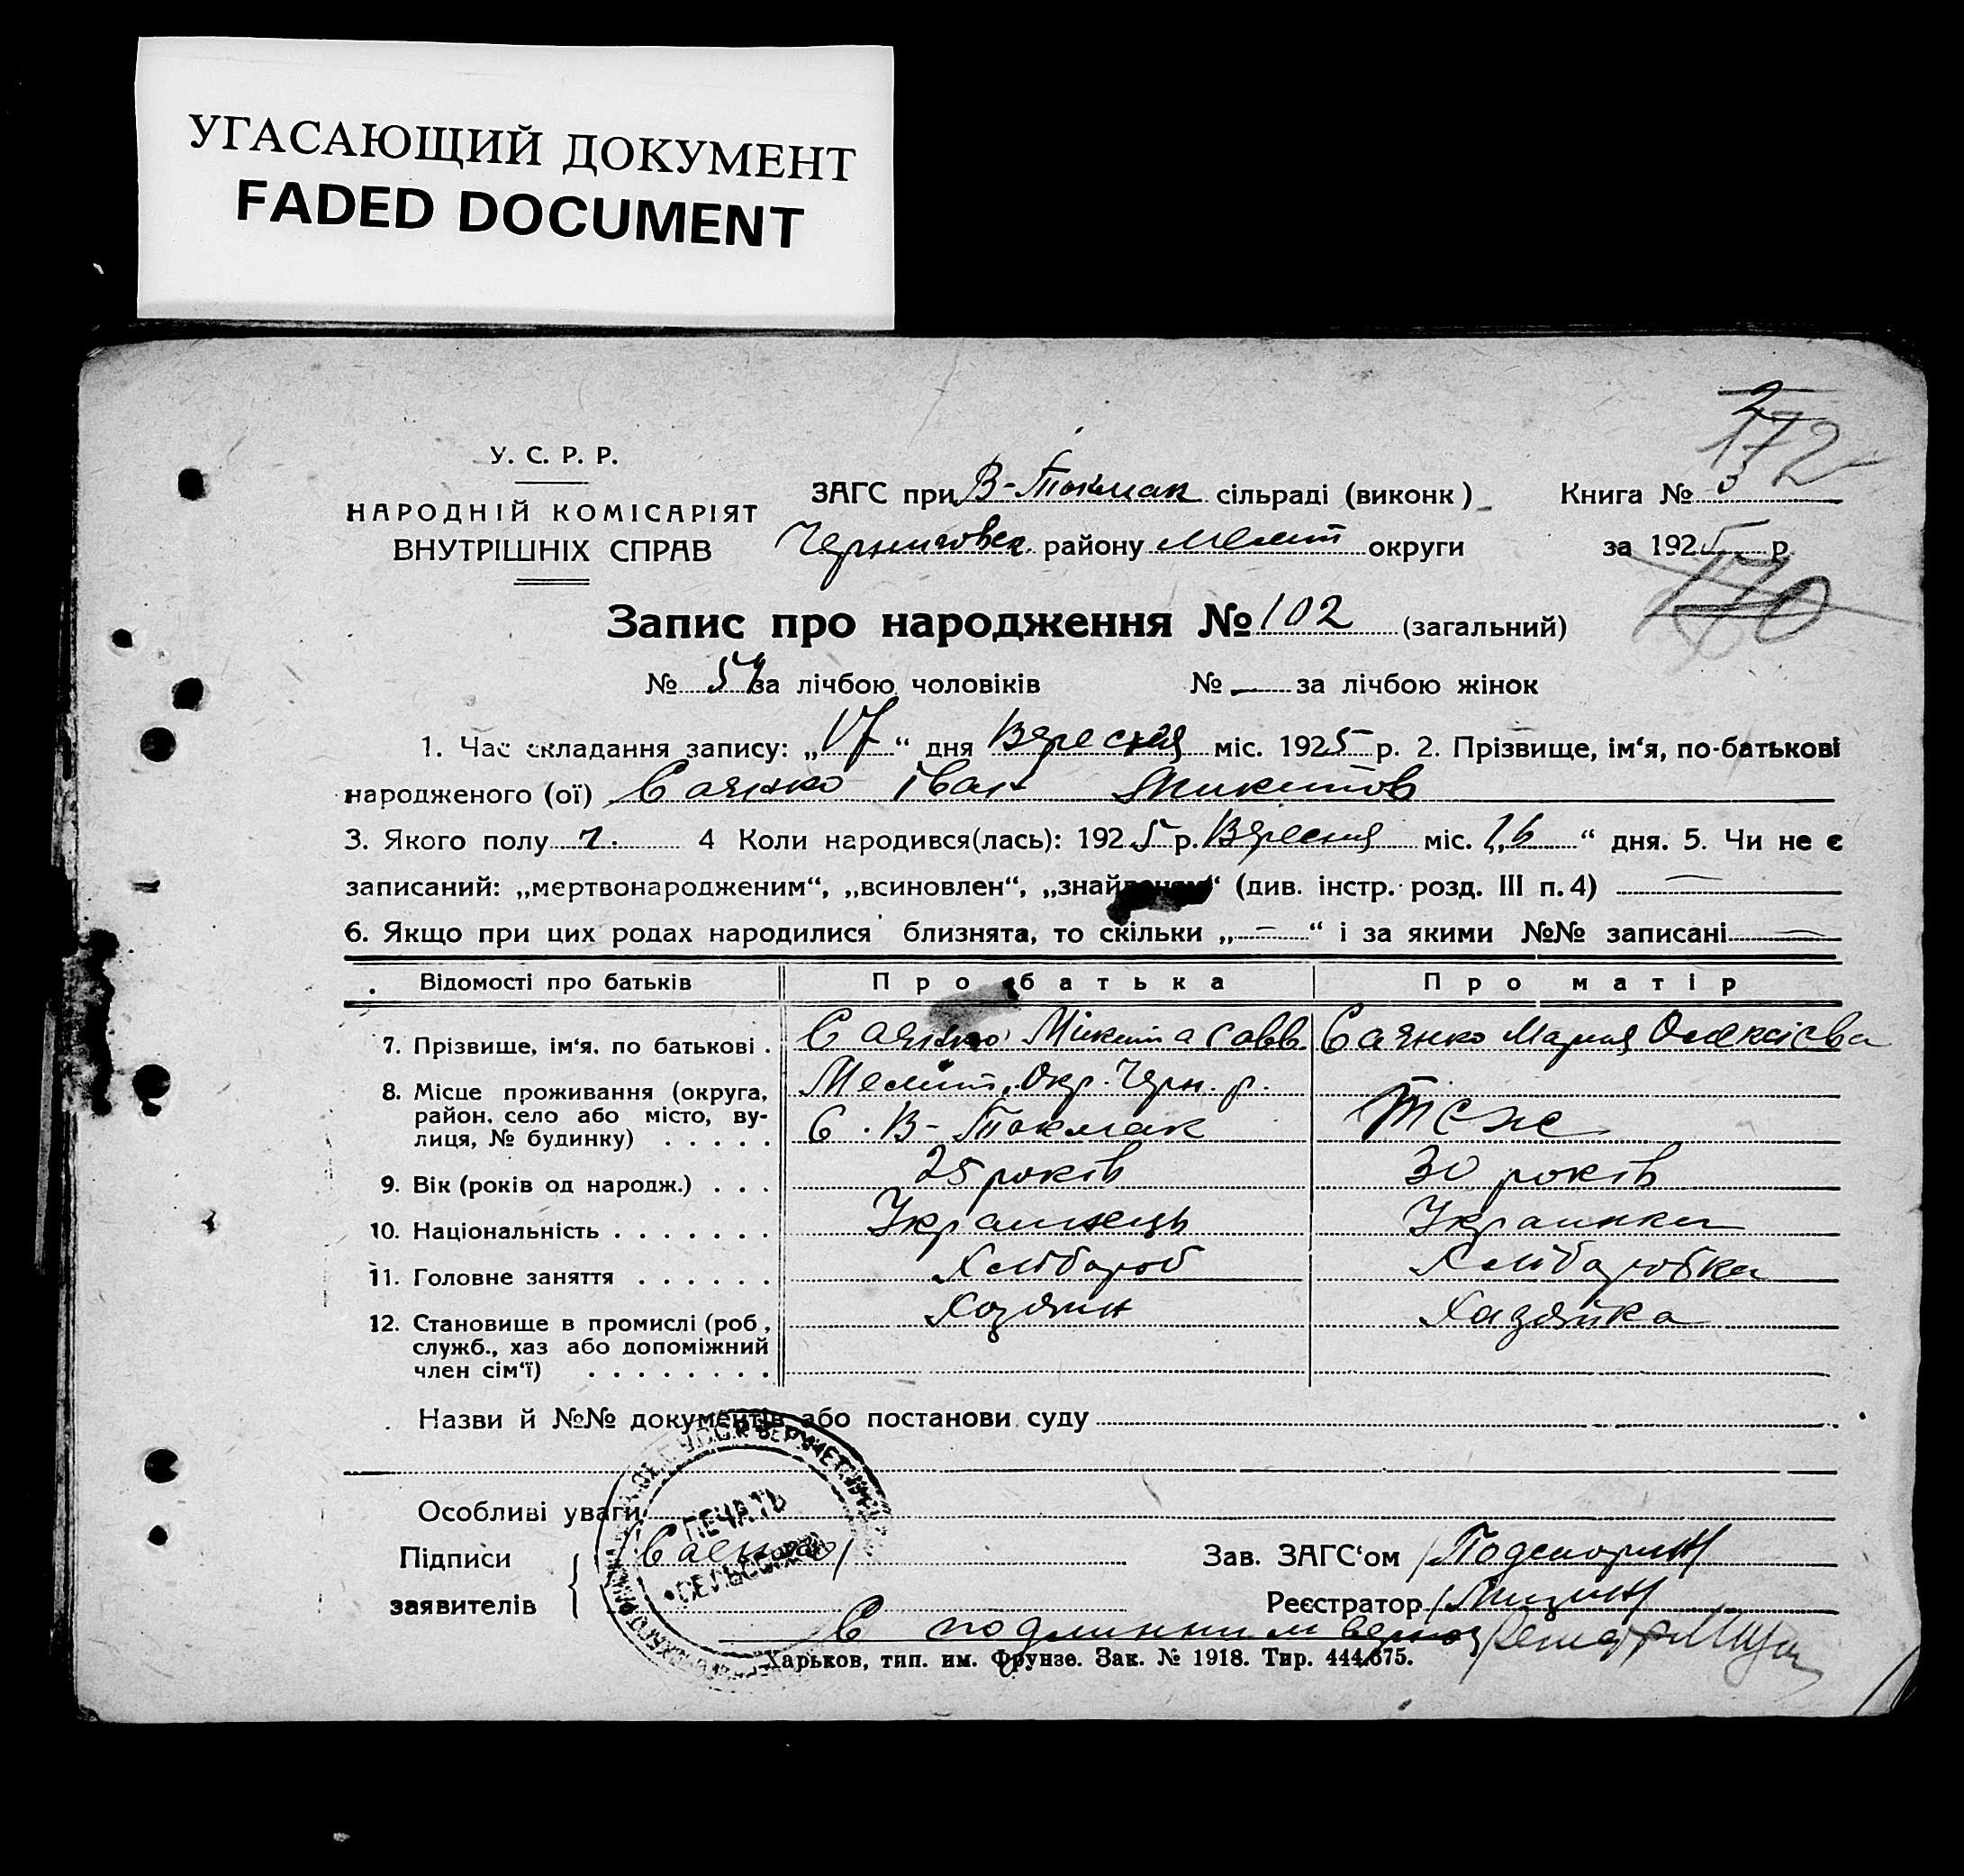 УГАСАЮЩИЙ ДОКУМЕНТ
FADED DOCUMENT
2
172
У. С. Р. Р.
НАРОДНІЙ КОМІСАРІЯТ
ВНУТРІШНІХ СПРАВ
ЗАГС при В-Токмак сільраді (виконк) Книга № 3
Черниговск. району Мелит округи за 1925 р.
170
Запис про народження № 102 (загальний)
№ 54 за лічбою чоловіків № — за лічбою жінок
1. Час складання запису: „17“ дня Вересня міс. 1925 р. 2. Прізвище, ім‘я, по-батькові
народженого (ої) Саянко Іван Микитов
3. Якого полу ч. 4 Коли народився(лась): 1925 р. Вересня міс. 16 “ дня. 5. Чи не є
записаний: „мертвонародженим“, „всиновлен“, „знайденим“ (див. інстр. розд. III п. 4) —
6. Якщо при цих родах народилися близнята, то скільки „—“ і за якими №№ записані —
Відомості про батьків Про батька Про матір
7. Прізвище, ім‘я, по батькові . Саянко Микита Савв. Саянко Мария Олексієва
8. Місце проживання (округа, Мелит. Окр. Черн. р.
район, село або місто, ву-
лиця, № будинку) . . . . . С. В-Токмак Теж
9. Вік (років од народж.) . . . 25 років 30 років
10. Національність . . . . . . . Українець Українка
11. Головне заняття . . . . . . Хлібороб Хліборобка
12. Становище в промислі (роб, Хозяин Хазяйка
служб., хаз або допоміжний
член сім‘ї) . . . . . . . .
Назви й №№ документів або постанови суду
Особливі уваги
ПЕЧАТЬ
СЕЛЬСОВЕТА
Підписи (Саенко) Зав. ЗАГС‘ом
заявителів Реєстратор
С подлинним верно
Харьков, тип. им. Фрунзе. Зак. № 1918. Тир. 444.675.